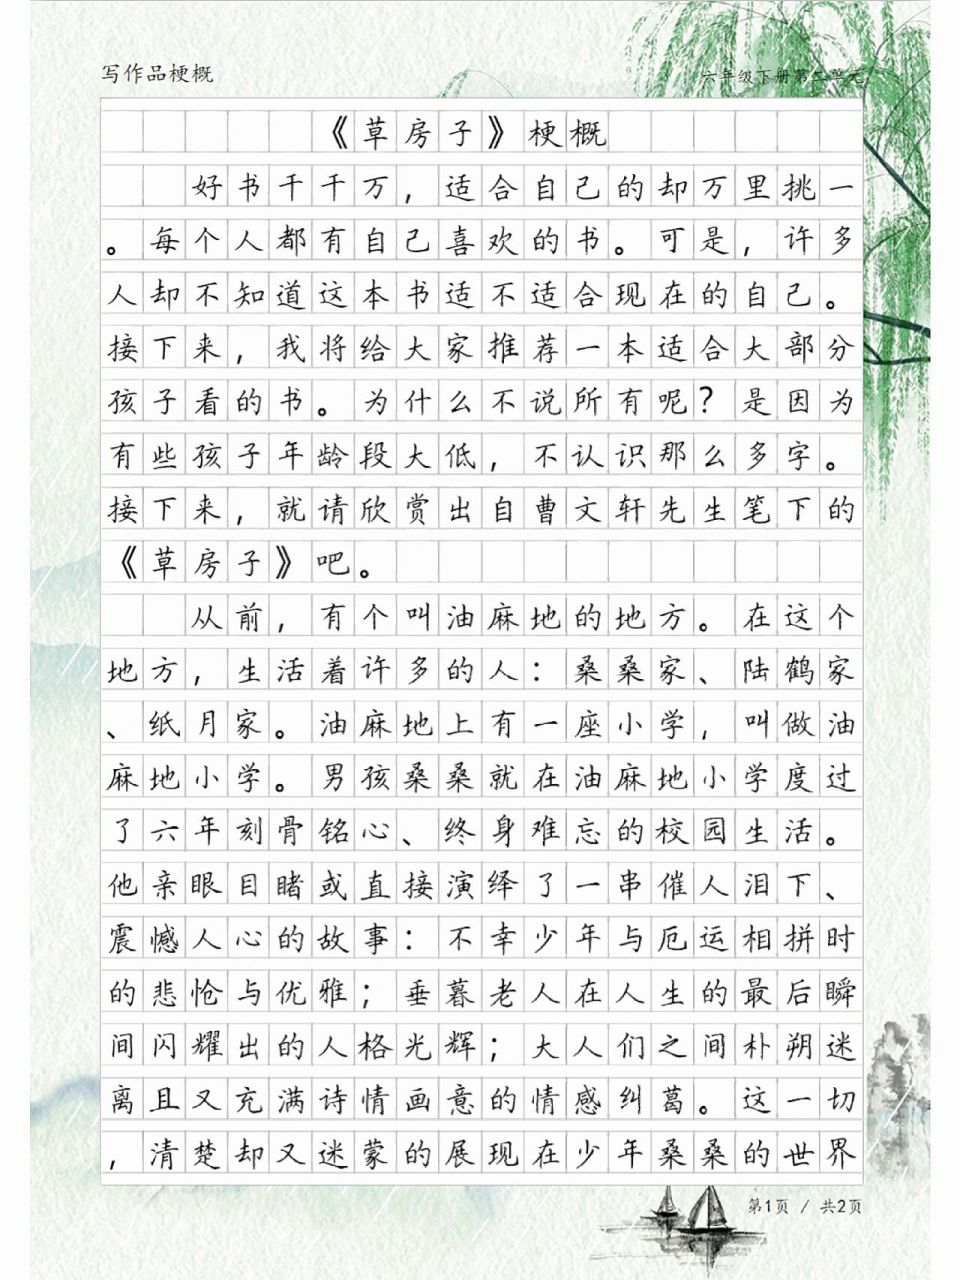 写作品梗概
六年级下册第二单元
《草房子》梗概
好书千千万，适合自己的却万里挑一
。每个人都有自己喜欢的书。可是，许多
人却不知道这本书适不适合现在的自己。
接下来，我将给大家推荐一本适合大部分
孩子看的书。为什么不说所有呢？是因为
有些孩子年龄段大低，不认识那么多字。
接下来，就请欣赏出自曹文轩先生笔下的
《草房子》吧。
从前，有个叫油麻地的地方。在这个
地方，生活着许多的人：桑桑家、陆鹤家
、纸月家。油麻地上有一座小学，叫做油
麻地小学。男孩桑桑就在油麻地小学度过
了六年刻骨铭心、终身难忘的校园生活。
他亲眼目睹或直接演绎了一串催人泪下、
震憾人心的故事：不幸少年与厄运相拼时
的悲怆与优雅；垂暮老人在人生的最后瞬
间闪耀出的人格光辉；大人们之间朴朔迷
离且又充满诗情画意的情感纠葛。这一切
，清楚却又迷蒙的展现在少年桑桑的世界
第1页 / 共2页